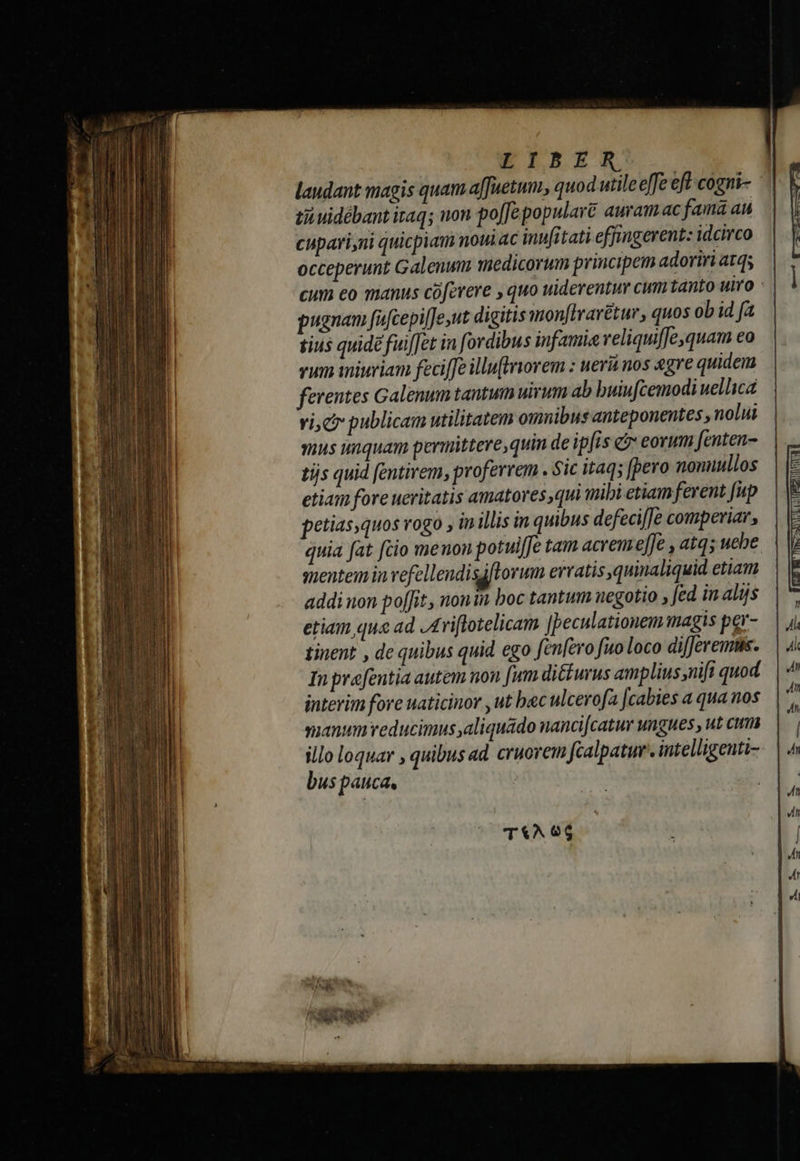 LIBER
laudant magis quam assuetum, quod utile esse est cogni-
tũ uidebant itaq; non posse popularẽ auram ac famã au
cupari,ni quicpiam noui ac inusitati effingerent: idcirco
occeperunt Galenum medicorum principem adoriri atq;
cum eo manus cõserere , quo uiderentur cum tanto uiro
pugnam suscepisse,ut digitis monstrarẽtur, quos ob id sa
tius quidẽ fuisset in sordibus infamiæ reliquisse,quam eo
rum iniuriam fecisse illustriorem : uerũ nos ægre quidem
ferentes Galenum tantum uirum ab huiuscemodi uellica
ri,& publicam utilitatem omnibus anteponentes, nolui
mus unquam permittere,quin de ipsis & eorum senten-
tijs quid sentirem, proferrem . Sic itaq; spero nonnullos
etiam fore ueritatis amatores,qui mihi etiam ferent sup
petias,quos rogo , in illis in quibus defecisse comperiar,
quia sat scio me non potuisse tam acrem esse , atq; uehe
mentem in refellendis istorum erratis ,quin aliquid etiam
addi non possit, non in hoc tantum negotio , sed in alijs
etiam quæ ad Aristotelicam speculationem magis per-
tinent , de quibus quid ego sensero suo loco disseremus.
In præsentia autem non sum dicturus amplius,nisi quod
interim fore uaticinor , ut hæc ulcerosa scabies a qua nos
manum reducimus,aliquãdo nanciscatur ungues, ut cum
illo loquar , quibus ad cruorem scalpatur. intelligenti-
bus pauca.
τέλος